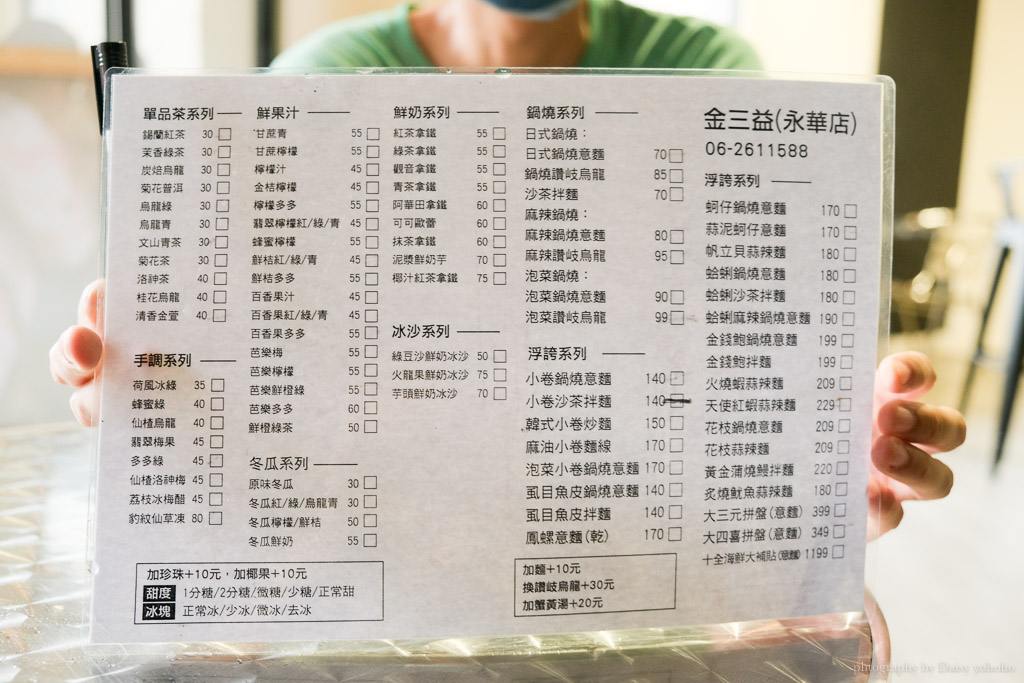 單品茶系列
錫蘭紅茶 30
茉香綠茶 30
炭焙烏龍 30
菊花普洱 30
烏龍綠 30
烏龍青 30
文山青茶 30
菊花茶 30
洛神茶 40
桂花烏龍 40
清香金萱 40
手調系列
荷風冰綠 35
蜂蜜綠 40
仙楂烏龍 40
翡翠梅果 45
多多綠 45
仙楂洛神梅 45
荔枝冰梅醋 45
豹紋仙草凍 80
鮮果汁
甘蔗青 55
甘蔗檸檬 55
檸檬汁 45
金桔檸檬 55
檸檬多多 55
翡翠檸檬紅/綠/青 45
蜂蜜檸檬 55
鮮桔紅/綠/青 45
鮮桔多多 55
百香果汁 45
百香果紅/綠/青 45
百香果多多 55
芭樂梅 55
芭樂檸檬 55
芭樂鮮橙綠 55
芭樂多多 60
鮮橙綠茶 50
冬瓜系列
原味冬瓜 30
冬瓜紅/綠/烏龍青 30
冬瓜檸檬/鮮桔 50
冬瓜鮮奶 55
加珍珠+10元，加椰果+10元
甜度 1分糖/2分糖/微糖/少糖/正常甜
冰塊 正常冰/少冰/微冰/去冰
鮮奶系列
紅茶拿鐵 55
綠茶拿鐵 55
觀音拿鐵 55
青茶拿鐵 55
阿華田拿鐵 60
可可歐蕾 60
抹茶拿鐵 60
泥漿鮮奶芋 70
椰汁紅茶拿鐵 75
冰沙系列
綠豆沙鮮奶冰沙 50
火龍果鮮奶冰沙 75
芋頭鮮奶冰沙 70
鍋燒系列
日式鍋燒：
日式鍋燒意麵 70
鍋燒讚岐烏龍 85
沙茶拌麵 70
麻辣鍋燒：
麻辣鍋燒意麵 80
麻辣讚岐烏龍 95
泡菜鍋燒：
泡菜鍋燒意麵 90
泡菜讚岐烏龍 99
浮誇系列
小卷鍋燒意麵 140
小卷沙茶拌麵 140
韓式小卷炒麵 150
麻油小卷麵線 170
泡菜小卷鍋燒意麵 170
虱目魚皮鍋燒意麵 140
虱目魚皮拌麵 140
鳳螺意麵(乾) 170
加麵+10元
換讚岐烏龍+30元
加蟹黃湯+20元
金三益(永華店)
06-2611588
浮誇系列
蚵仔鍋燒意麵 170
蒜泥蚵仔意麵 170
帆立貝蒜辣麵 180
蛤蜊鍋燒意麵 180
蛤蜊沙茶拌麵 180
蛤蜊麻辣鍋燒意麵 190
金錢鮑鍋燒意麵 199
金錢鮑拌麵 199
火燒蝦蒜辣麵 209
天使紅蝦蒜辣麵 229
花枝鍋燒意麵 209
花枝蒜辣麵 209
黃金蒲燒鰻拌麵 220
炙燒魷魚蒜辣麵 180
大三元拼盤(意麵) 399
大四喜拼盤(意麵) 349
十全海鮮大補貼(意麵) 1199
photography by Daisy yohoho